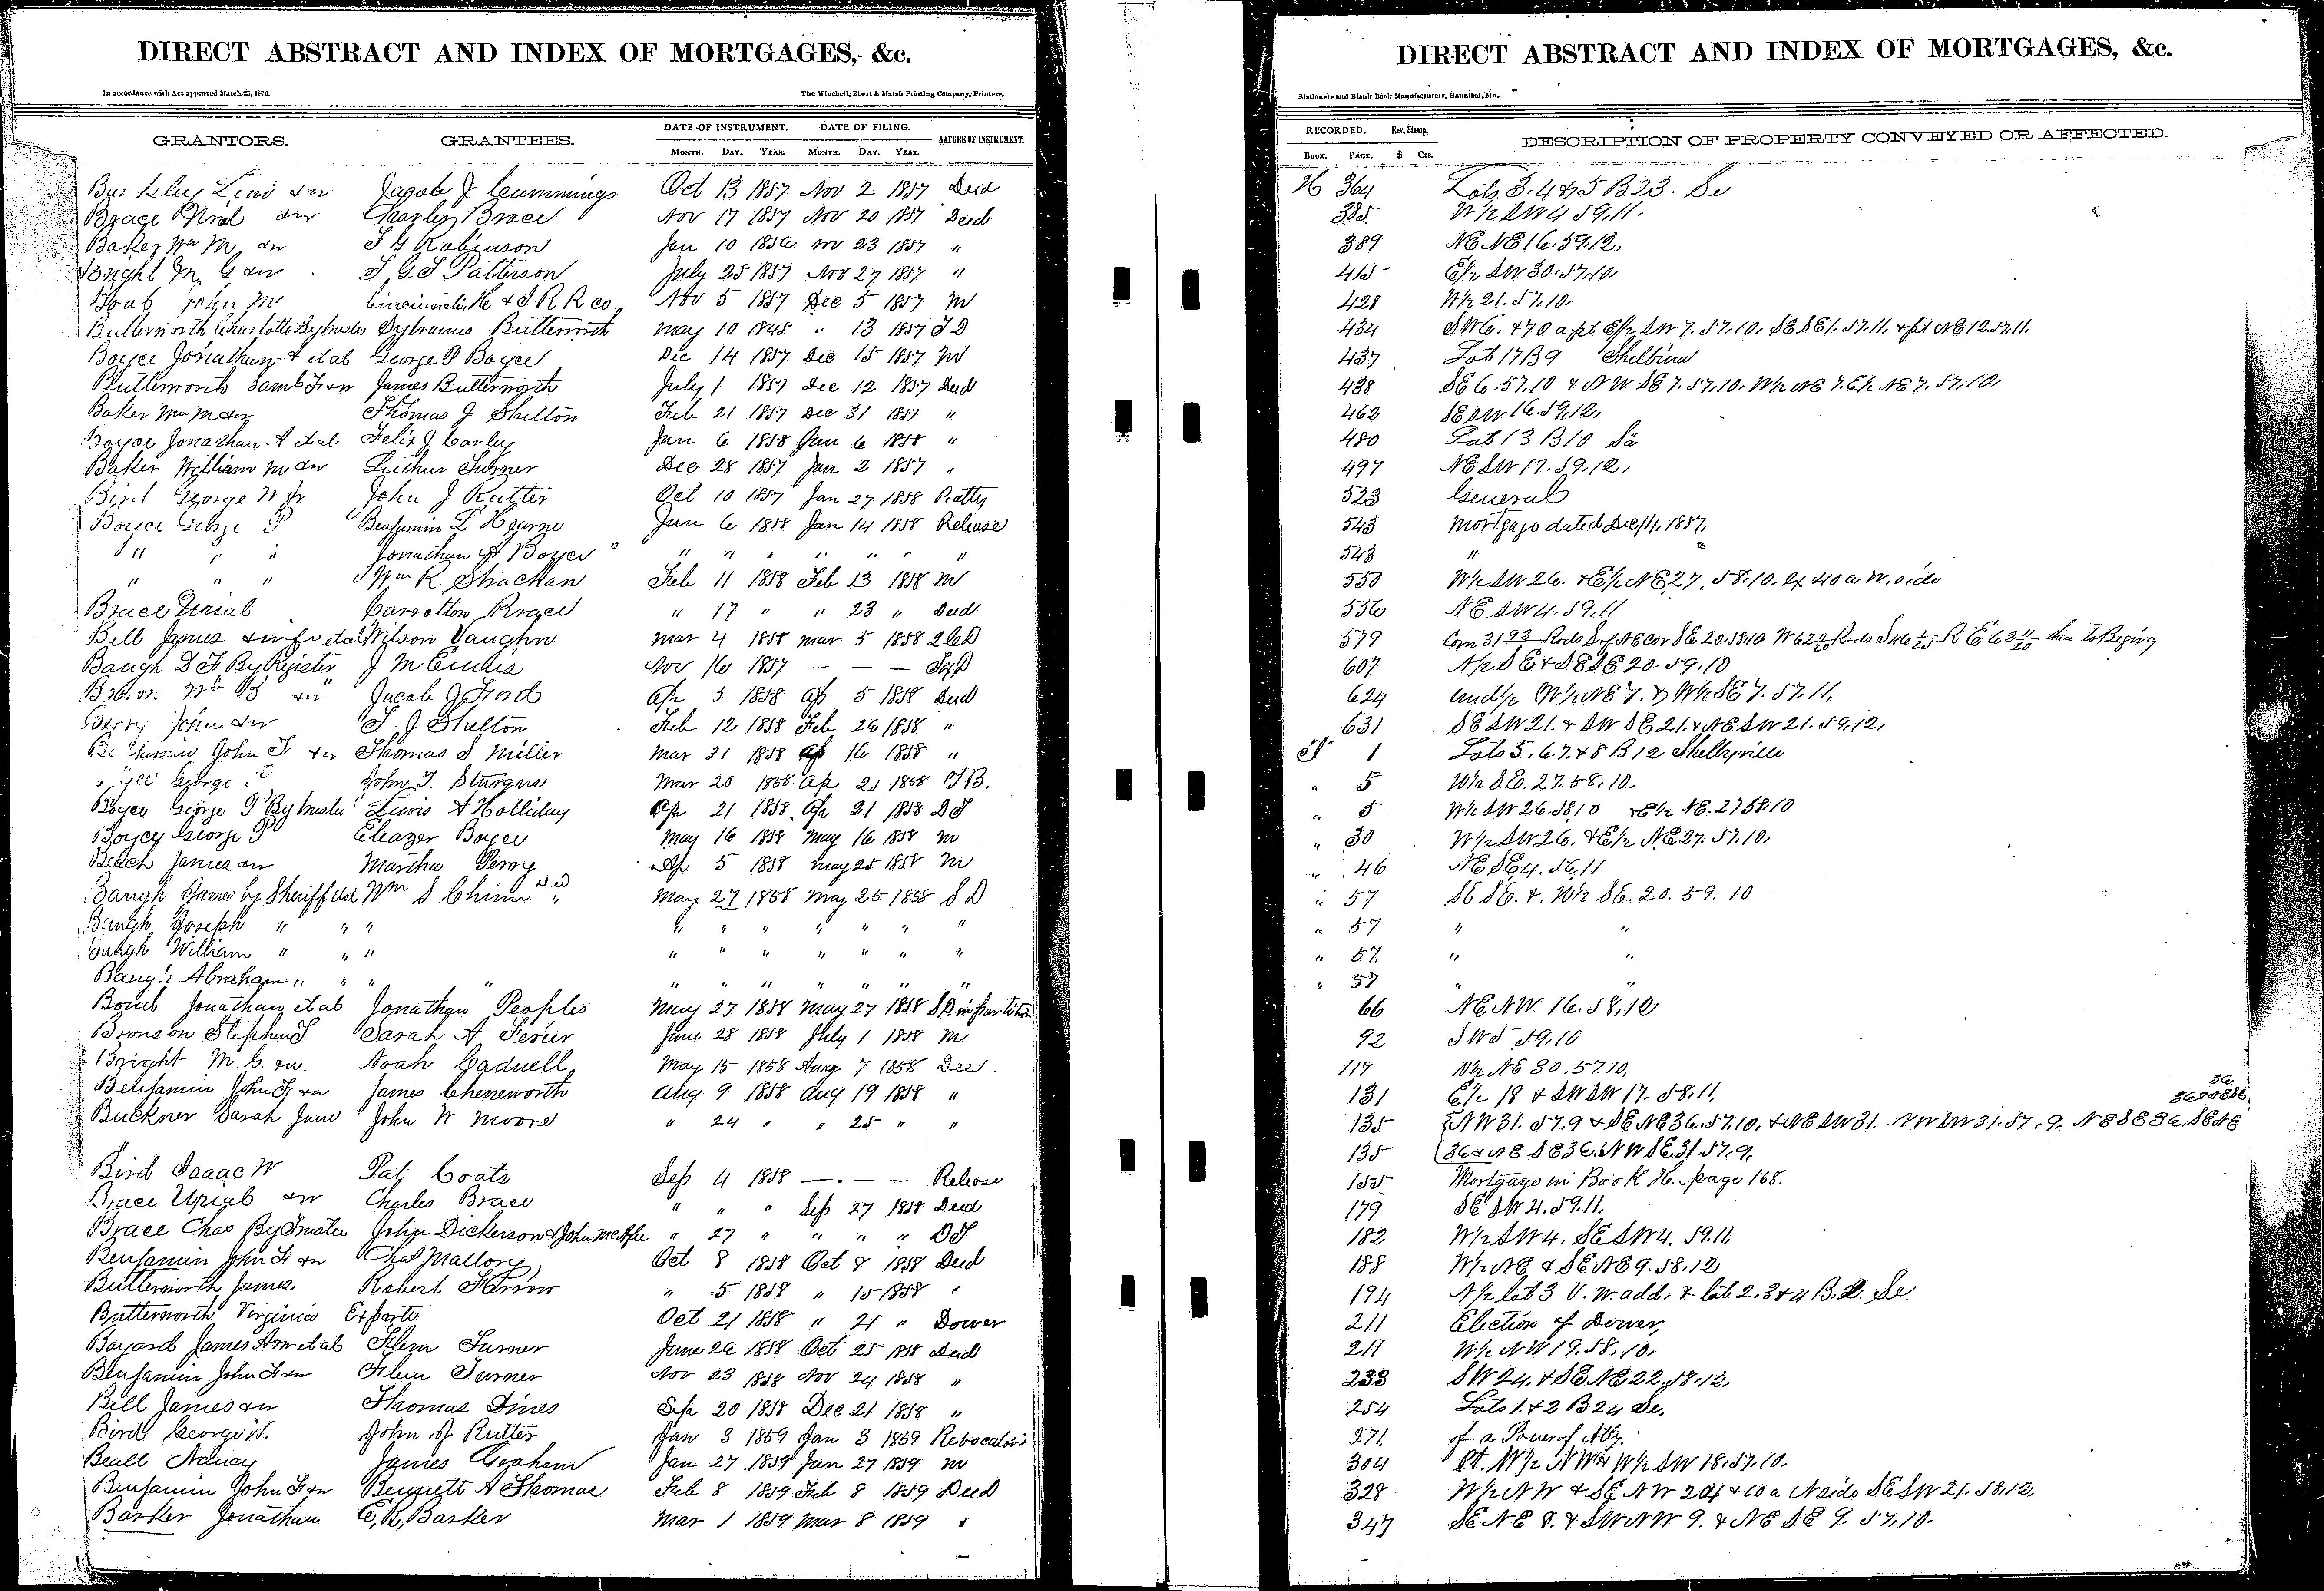 DIRECT ABSTRACT AND INDEX OF MORTGAGES, &c.
In accordance with Act approved March 25, 1870.
The Winchell, Ebert & Marsh Printing Company, Printers,
GRANTORS. GRANTEES. DATE OF INSTRUMENT. DATE OF FILING. NATURE OF INSTRUMENT.
MONTH. DAY. YEAR. MONTH. DAY. YEAR.
Jacob J Cummings Oct 13 1857 Nov 2 1857 Deed
Charles Brace Nov 17 1857 Nov 20 1857 Deed
Baker Wm M & w Robinson Jan 10 1856 Nov 23 1857 "
M G & w Patterson July 25 1857 Nov 27 1857 "
John M Cincinnati R R Co Nov 5 1857 Dec 5 1857 M
Butterworth Charlotte By trustee Sylvanus Butterworth May 10 1845 " 13 1857 T D
Boyce Jonathan A et al George P Boyce Dec 14 1857 Dec 15 1857 M
Butterworth Saml F & w James Butterworth July 1 1857 Dec 12 1857 Deed
Baker Wm M & w Thomas J Shelton Feb 21 1857 Dec 31 1857 "
Boyce Jonathan A et al Felix J Carley Jan 6 1858 Jan 6 1858 "
Baker William M & w Luther Turner Dec 28 1857 Jan 2 1857 "
Bird George W Jr John J Rutter Oct 10 1857 Jan 27 1858 P atty
Boyce George P Benjamin L Hearne Jan 6 1858 Jan 14 1858 Release
" " " Jonathan A Boyce " " " " " " "
" " " Wm R Strachan Feb 11 1858 Feb 13 1858 M
Brace Uriah Carrolton Brace " 17 " " 23 " Deed
Bell James & wife et al Wilson Vaughn Mar 4 1858 Mar 5 1858 2 C D
Baugh D F By Register J M Ennis Nov 16 1857 — — —
Wm B & w Jacob J Ford Ap 5 1858 Ap 5 1858 Deed
Berry John & w T. J Shelton Feb 12 1858 Feb 26 1858 "
Benjamin John F & w Thomas S Miller Mar 31 1858 Ap 16 1858 "
Boyce George P John T. Sturges Mar 20 1858 Ap 21 1858
Boyce George P By trustee Lewis A Holliday Ap 21 1858 Ap 21 1858 D T
Boyce George P Eleazer Boyce May 16 1858 May 16 1858 M
Beach James & w Martha Perry Ap 5 1858 May 25 1858 M
Baugh James by Sheriff Deed Wm S Chinn " May 27 1858 May 25 1858 S D
Baugh Joseph " " " " " " " " " "
Baugh William " " " " " " " " " "
Baugh Abraham " " " " " " " " " " "
Bond Jonathan et al Jonathan Peoples May 27 1858 May 27 1858 S D in partition
Bronson Stephen S Sarah A Ferier June 28 1858 July 1 1858 M
Bright M. G. & w. Noah Caduell May 15 1858 Aug 7 1858 Deed.
Benjamin John F & w James Cheneworth Aug 9 1858 Aug 19 1858 "
Buckner Sarah Jane John W Moore " 24 " " 25 " "
Bird Isaac W Patj Coats Sep 4 1858 — . — — Release
Brace Uriah & w Charles Brace " " " Sep 27 1858 Deed
Brace Chas By Trustee John Dickerson & John McAfee " 27 " " " " D T
Benjamin John F & w Chas Mallory Oct 8 1858 Oct 8 1858 Deed
Butterworth James Robert Farrow " 5 1858 " 15 1858 "
Butterworth Virginia Ex parte Oct 21 1858 " 21 " Dower
Bayard James A & w et al Flem Turner June 26 1858 Oct 25 1858 Deed
Benjamin John F & w Flem Turner Nov 23 1858 Nov 24 1858 "
Bell James & w Thomas Dines Sep 20 1858 Dec 21 1858 "
Bird George W. John J Rutter Jan 3 1859 Jan 3 1859 Revocation
Beall Nancy James Graham Jan 27 1859 Jan 27 1859 M
Benjamin John F & w Bennett A Thomas Feb 8 1859 Feb 8 1859 Deed
Barker Jonathan E. R. Barker Mar 1 1859 Mar 8 1859 "
DIRECT ABSTRACT AND INDEX OF MORTGAGES, &c.
Stationers and Blank Book Manufacturers, Hannibal, Mo.
RECORDED. Rev. Stamp. DESCRIPTION OF PROPERTY CONVEYED OR AFFECTED.
BOOK. PAGE. $ Cts.
H 364 Lots 3. 4 & 5 B 23. Se
385 W½ SW 4 59. 11.
389 NE NE 16. 59. 12.
415 E½ SW 30. 57. 10.
428 W½ 21. 57. 10.
434 SW 6. & 70 a pt E½ SW 7. 57. 10. SE SE 1. 57. 11. & pt NE 12 57. 11.
437 Lot 17 B 9 Shelbina
438 SE 6. 57. 10 & NW SE 7. 57. 10. W½ NE 7. E½ NE 7. 57. 10.
462 SE SW 16. 59. 12.
480 Lot 13 B 10 Sa
497 NE SW 17. 59. 12.
523 General
543 Mortgage dated Dec 14. 1857.
543 "
550 W½ SW 26. & E½ NE 27. 58. 10. ex 40 a W. side
556 NE SW 4. 59. 11
579
607 N½ SE & SE SE 20. 59. 10
624 und ½ W½ NE 7. & W½ SE 7. 57. 11.
631 SE SW 21. & SW SE 21. & NE SW 21. 59. 12.
1 Lots 5. 6. 7. & 8 B 12 Shelbyville
" 5 W½ SE. 27. 58. 10.
" 5 W½ SW 26. 58. 10 & E½ NE. 27 58 10
" 30 W½ SW 26. & E½ NE 27. 57. 10.
" 46 NE SE 4. 56. 11
" 57 SE SE. & W½ SE. 20. 59. 10
" 57 " "
" 57. " "
" 57 " "
66 NE NW. 16. 58. 12
92 SW 5 59. 10
117 W½ NE 30. 57 10.
131 E½ 18 & SW SW 17. 58. 11.
135 NW 31. 57. 9 & SE NE 36. 57. 10. & NE SW 31. NW SW 31. 57. 9.
135 NW SE 31. 57. 9.
155 Mortgage in Book H. page 168.
179 SE SW 4. 59. 11.
182 W½ SW 4. SE SW 4. 59. 11.
188 W½ NE & SE NE 9. 58. 12
194 N½ lot 3 V. W. add. & lot 2. 3 & 4
211 Election of Dower,
211 W½ NW 19. 58. 10.
233 SW 24. & SE NE 22. 58. 12.
254 Lots 1. & 2 B 24 Se.
271. of a Power of Atty.
304 Pt. W½ NW & W½ SW 18. 57. 10.
328 W½ NW & SE NW & 10 a N side SE SW 21. 58. 12.
347 SE NE 8. & SW NW 9. & NE SE 9. 57. 10.